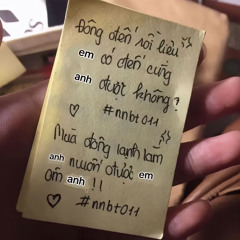 Đông đến rồi liệu
em có đến cùng
anh được không?
♡ #nnbt011
Mùa đông lạnh lắm
anh muốn được em
ôm anh !!
♡ #nnbt011